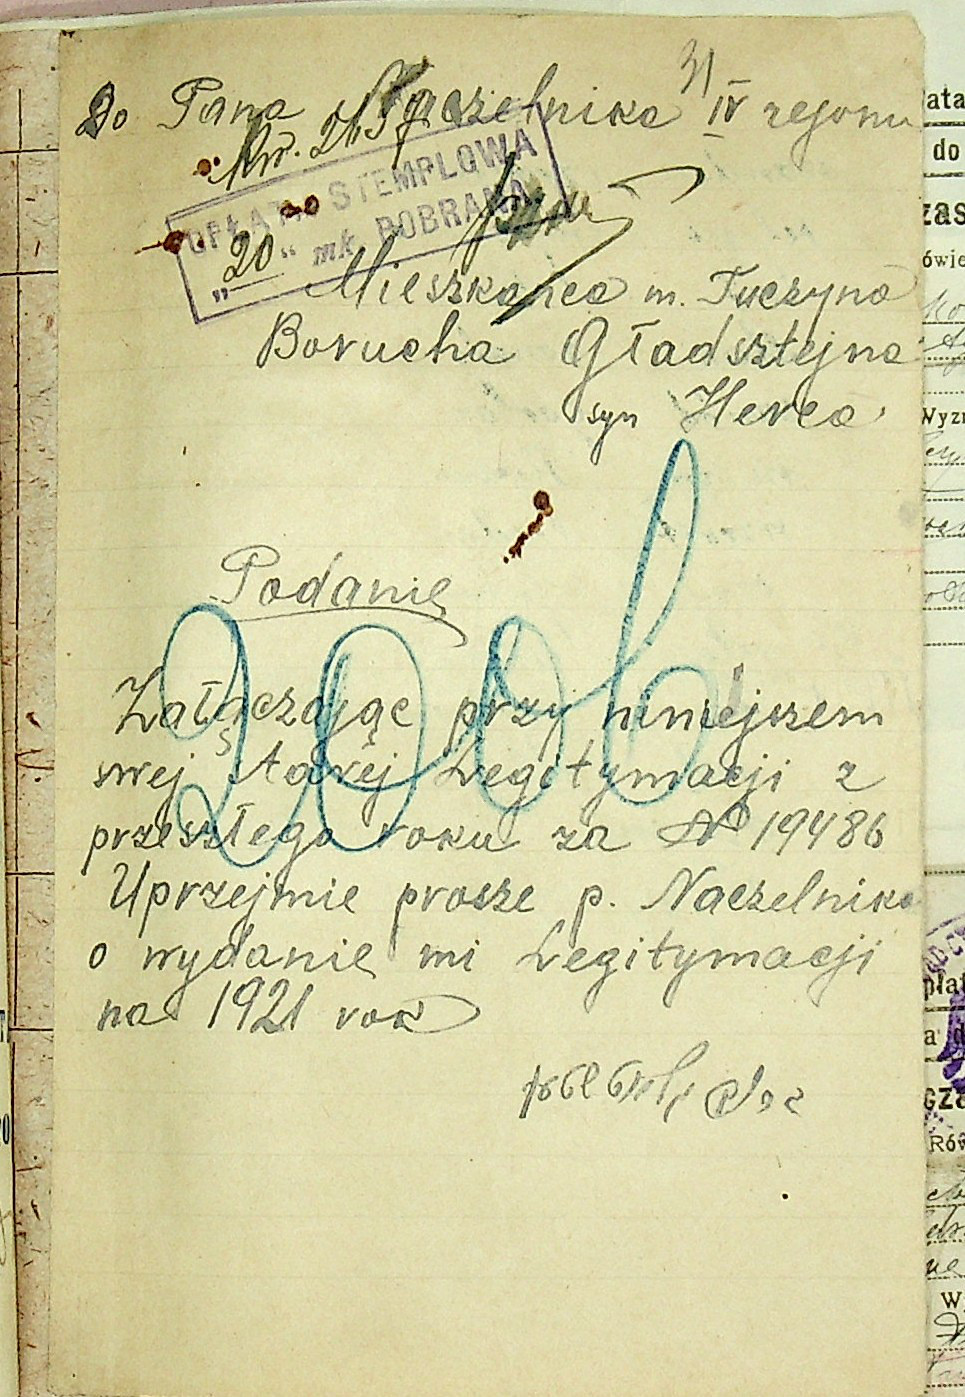 31
Do Pana Naczelnika IV rejonu
OPŁATA STEMPLOWA
„20“ mk. POBRANA
Mieszkańca m. Tuczyna
Borucha Gładsztejna
syn Herca
Podanie
Załączając przy niniejszem
swej starej Legitymacji z
przeszłego roku za № 19486
Uprzejmie prosze p. Naczelnika
o wydanie mi Legitymacji
na 1921 rok